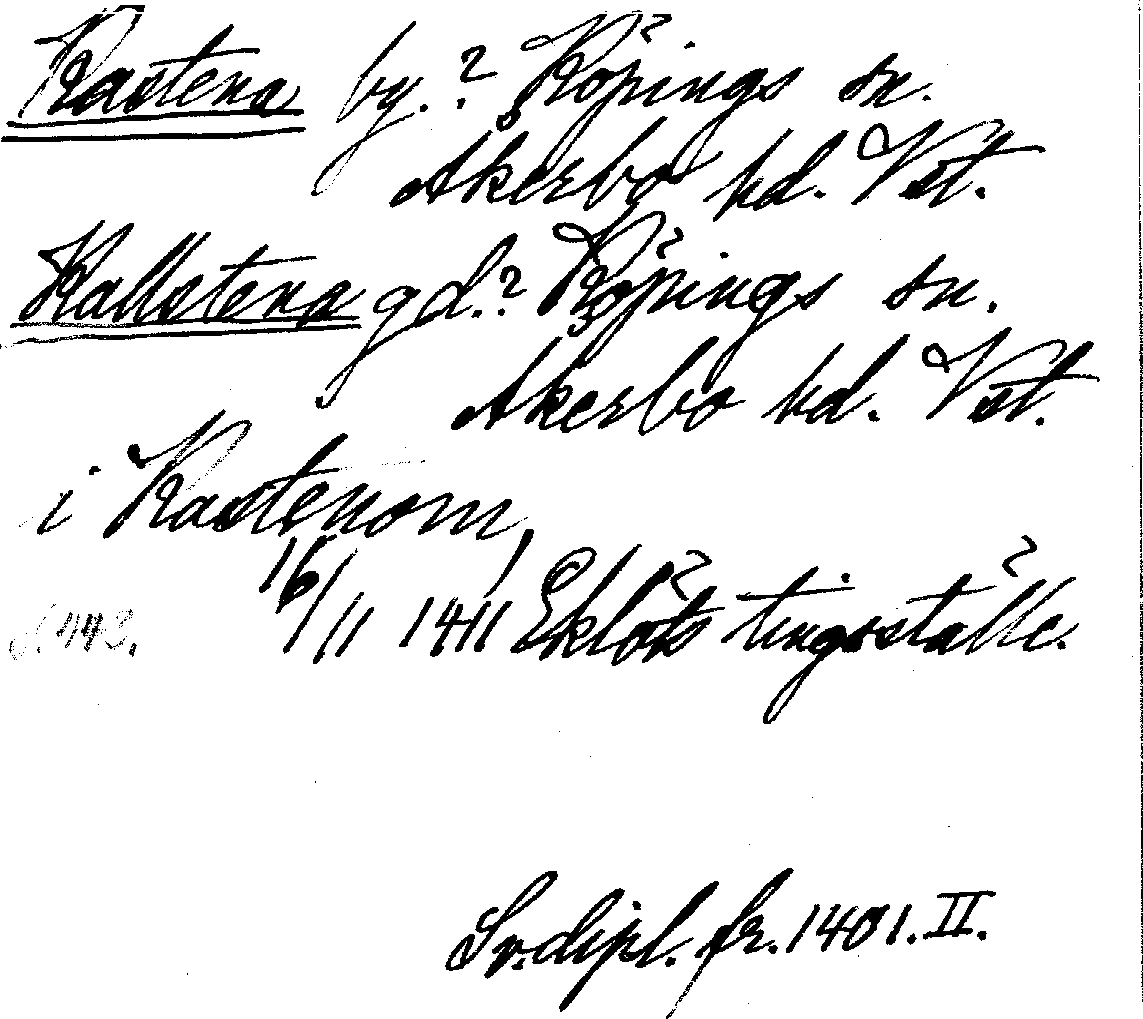 Kastena by.? Köpings sn.
Åkerbo hd. Vst.
Kallstena gd.? Köpings sn.
Åkerbo hd. Vst.
i Kastenom,
16/11 1411 Eklöts tingställe.
s. 443.
Sv. dipl. fr. 1401. II.